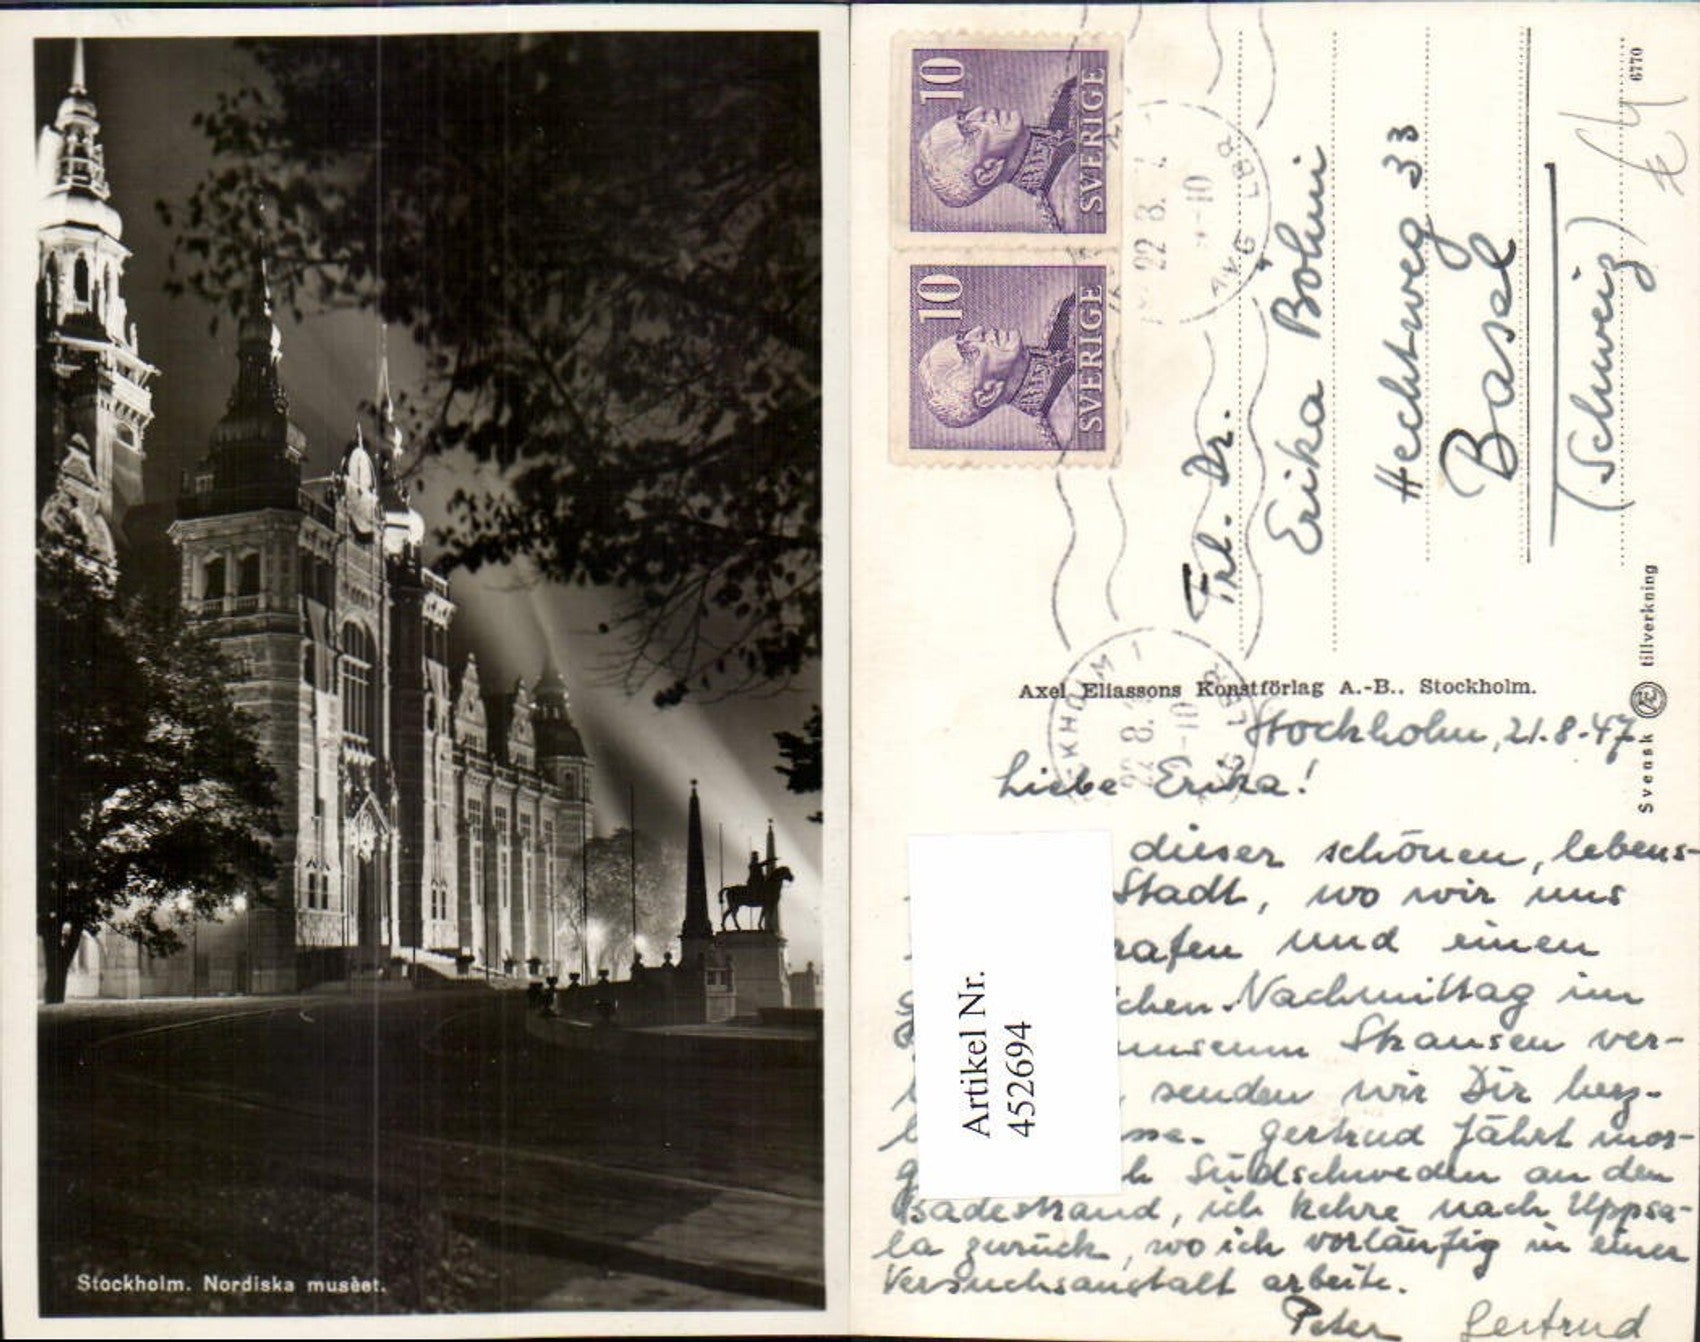 Stockholm. Nordiska musèet.
10
SVERIGE
10
SVERIGE
22 8.
9-10
AVG LBR
KHOLM 1
22 8.
9-10
Frl. Dr.
Erika Bohni
Hechtweg 33
Basel
(Schweiz)
6770
Axel Eliassons Konstförlag A.-B., Stockholm.
Svensk tillverkning
Stockholm, 21.8.47
Liebe Erika!
dieser schönen, lebens-
Stadt, wo wir uns
trafen und einen
chen Nachmittag im
museum Skansen ver-
senden wir Dir herz-
sse. Gertrud fährt mor-
h Südschweden an den
Badestrand, ich kehre nach Uppsa-
la zurück, wo ich vorläufig in einer
Versuchsanstalt arbeite.
Peter Gertrud
Artikel Nr.
452694